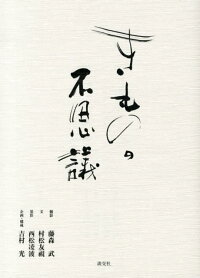 きものの
不思議
撮影 藤森 武
文 村松友視
西松凌波
企画・構成 吉村 光
淡交社